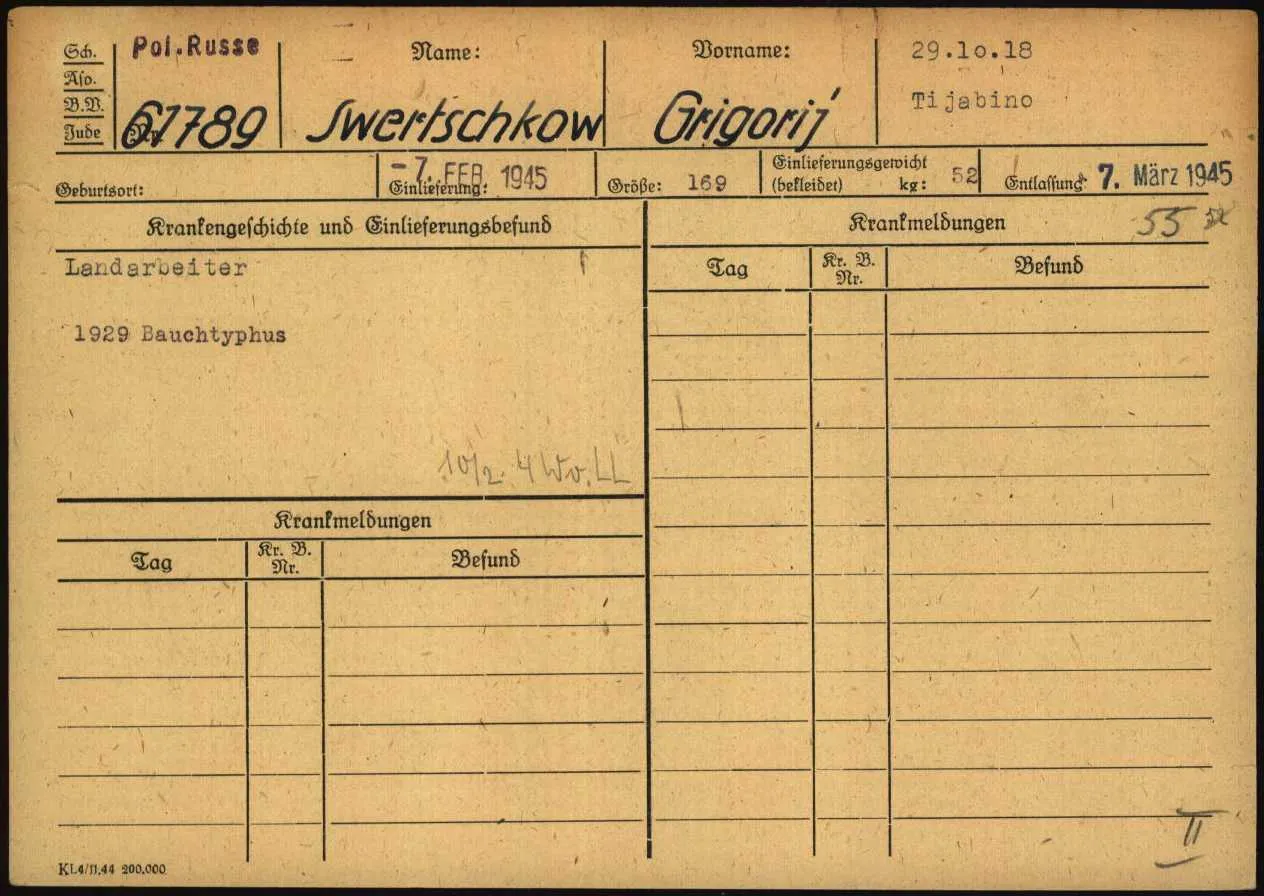 Sch.
Aso.
B.V.
Jude
Pol.Russe
Nr.
61789
Name:
Swertschkow
Vorname:
Grigorij
29.10.18
Tijabino
Geburtsort:
Einlieferung: -7. FEB 1945
Größe: 169
Einlieferungsgewicht
(bekleidet) kg: 52
Entlassung: 7. März 1945
Krankengeschichte und Einlieferungsbefund
Landarbeiter
1929 Bauchtyphus
10/2. 4 Wo. LL
Krankmeldungen
Tag
Kr. B.
Nr.
Befund
Krankmeldungen
55
Tag
Kr. B.
Nr.
Befund
II
KL4/11.44 200.000